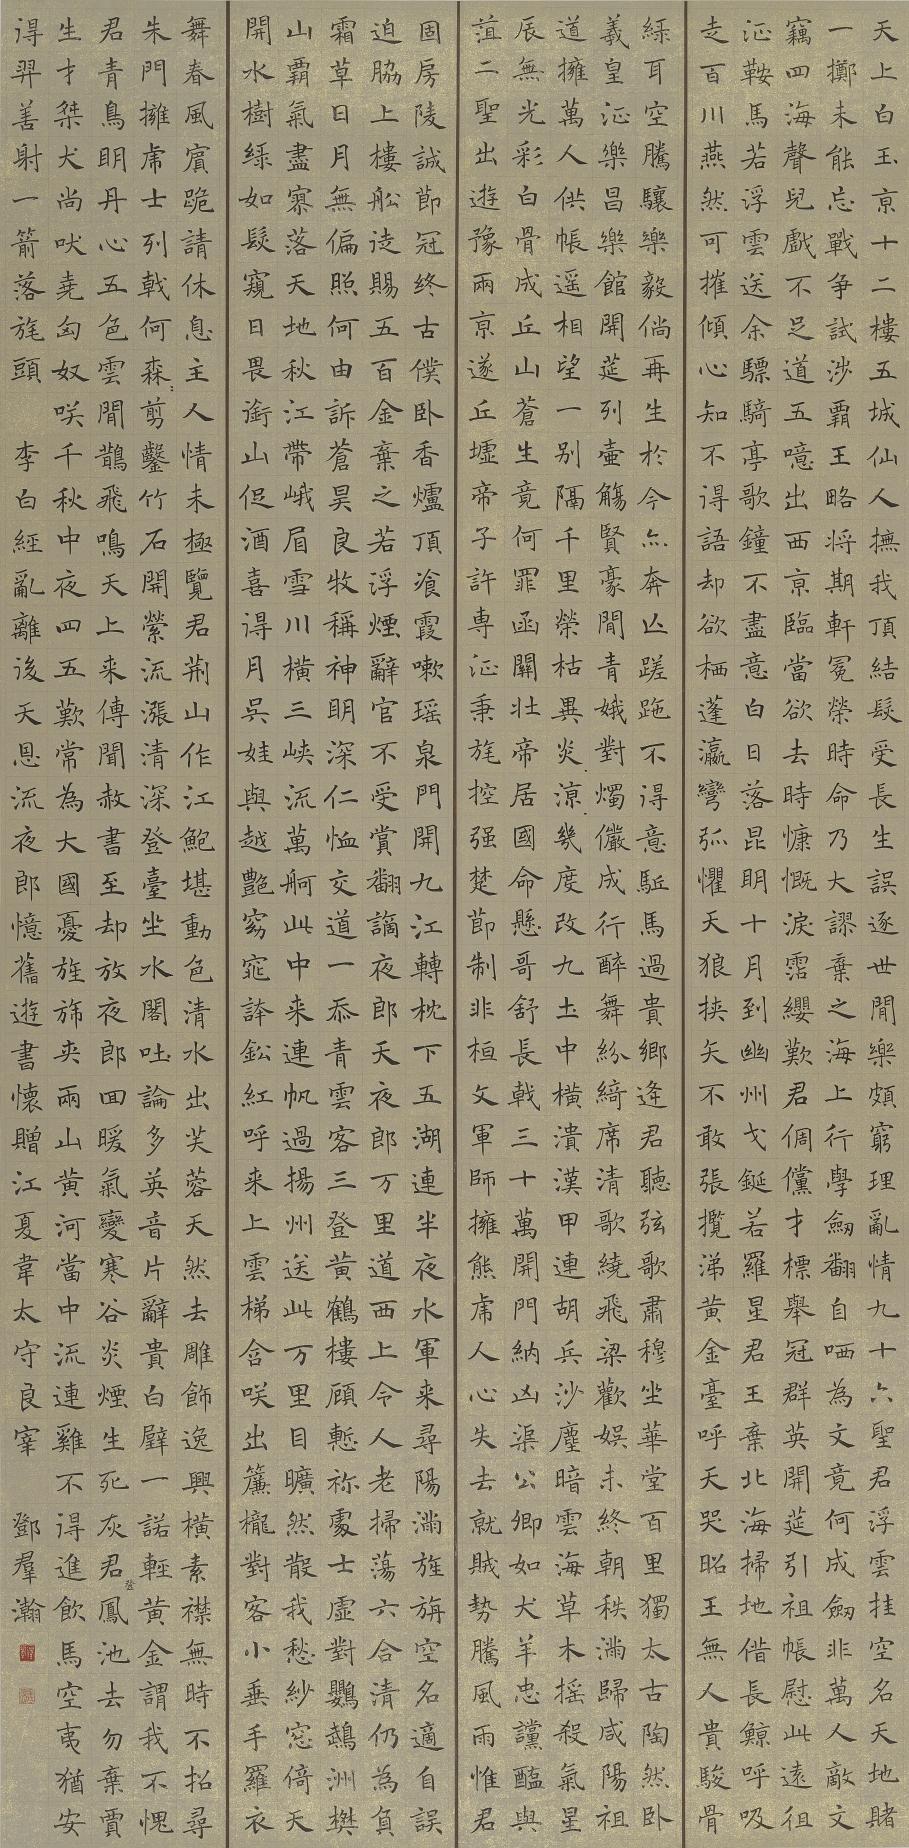 天上白玉京十二樓五城仙人撫我頂結髮受長生誤逐世間樂頗窮理亂情九十六聖君浮雲挂空名天地賭
一擲未能忘戰爭試涉霸王略將期軒冕榮時命乃大謬棄之海上行學劒翻自哂為文竟何成劒非萬人敵文
竊四海聲兒戲不足道五噫出西京臨當欲去時慷慨淚霑纓歎君倜儻才標舉冠群英開筵引祖帳慰此遠徂
征鞍馬若浮雲送余驃騎亭歌鐘不盡意白日落昆明十月到幽州戈鋋若羅星君王棄北海掃地借長鯨呼吸
走百川燕然可摧傾心知不得語却欲栖蓬瀛彎弧懼天狼挾矢不敢張攬涕黃金臺呼天哭昭王無人貴駿骨
綠耳空騰驤樂毅倘再生於今亦奔亡蹉跎不得意駈馬過貴鄉逢君聽弦歌肅穆坐華堂百里獨太古陶然卧
羲皇征樂昌樂館開筵列壺觴賢豪間青娥對燭儼成行醉舞紛綺席清歌繞飛梁歡娛未終朝秩滿歸咸陽祖
道擁萬人供帳遥相望一別隔千里榮枯異炎涼幾度改九土中橫潰漢甲連胡兵沙塵暗雲海草木搖殺氣星
辰無光彩白骨成丘山蒼生竟何罪函關壯帝居國命懸哥舒長戟三十萬開門納凶渠公卿如犬羊忠讜醢與
菹二聖出遊豫兩京遂丘墟帝子許專征秉旄控强楚節制非桓文軍師擁熊虎人心失去就賊勢騰風雨惟君
固房陵誠節冠終古僕卧香爐頂飡霞嗽瑤泉門開九江轉枕下五湖連半夜水軍来尋陽滿旌旃空名適自誤
迫脇上樓舩徒賜五百金棄之若浮煙辭官不受賞翻謫夜郎天夜郎万里道西上令人老掃蕩六合清仍為負
霜草日月無偏照何由訴蒼昊良牧稱神明深仁恤交道一忝青雲客三登黃鶴樓顧慙祢處士虛對鸚鵡洲樊
山霸氣盡寥落天地秋江帶峨眉雪川橫三峽流萬舸此中来連帆過揚州送此万里目曠然散我愁紗窓倚天
開水樹綠如髮窺日畏銜山促酒喜得月吳娃與越艷窈窕誇鈆紅呼来上雲梯含咲出簾櫳對客小垂手羅衣
舞春風賓跪請休息主人情未極覽君荊山作江鮑堪動色清水出芙蓉天然去雕飾逸興橫素襟無時不招尋
朱門擁虎士列戟何森〻剪鑿竹石開縈流漲清深登臺坐水閣吐論多英音片辭貴白璧一諾輕黃金謂我不愧
君青鳥明丹心五色雲間鵲飛鳴天上来傳聞赦書至却放夜郎回暖氣變寒谷炎煙生死灰君登鳳池去勿棄賈
生才桀犬尚吠堯匈奴咲千秋中夜四五歎常為大國憂旌旆夾兩山黃河當中流連雞不得進飲馬空夷猶安
得羿善射一箭落旄頭 李白經亂離後天恩流夜郎憶舊遊書懷贈江夏韋太守良宰 鄧羣瀚